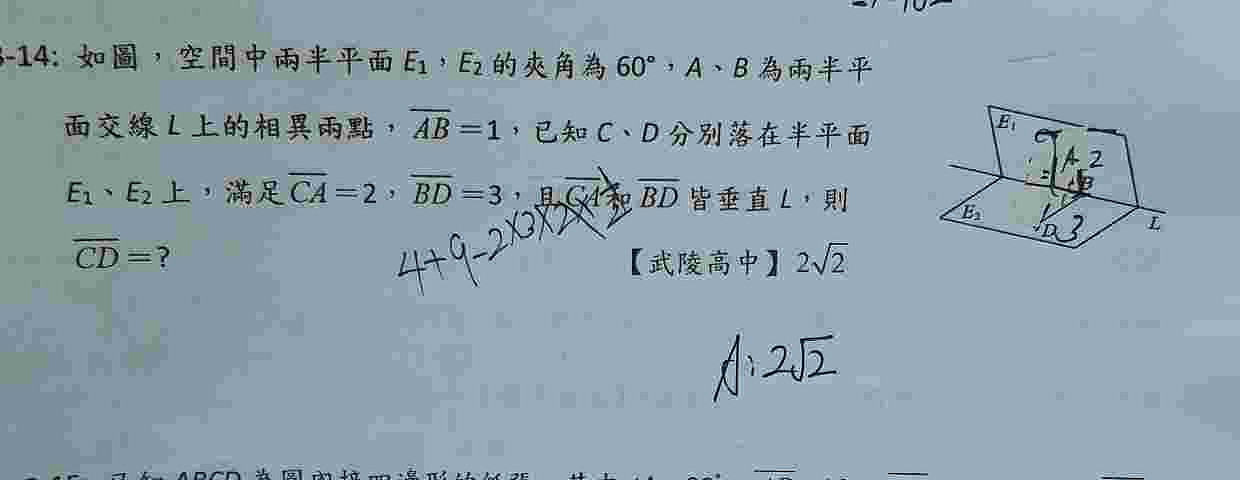 -14: 如圖，空間中兩半平面 E₁，E₂ 的夾角為 60°，A、B 為兩半平
面交線 L 上的相異兩點，AB=1，已知 C、D 分別落在半平面
E₁、E₂ 上，滿足 CA=2，BD=3，且 CA 和 BD 皆垂直 L，則
CD=?
4+9-2×3×2×
【武陵高中】2√2
A: 2√2
E₁
C
A 2
B
E₂
D 3
L